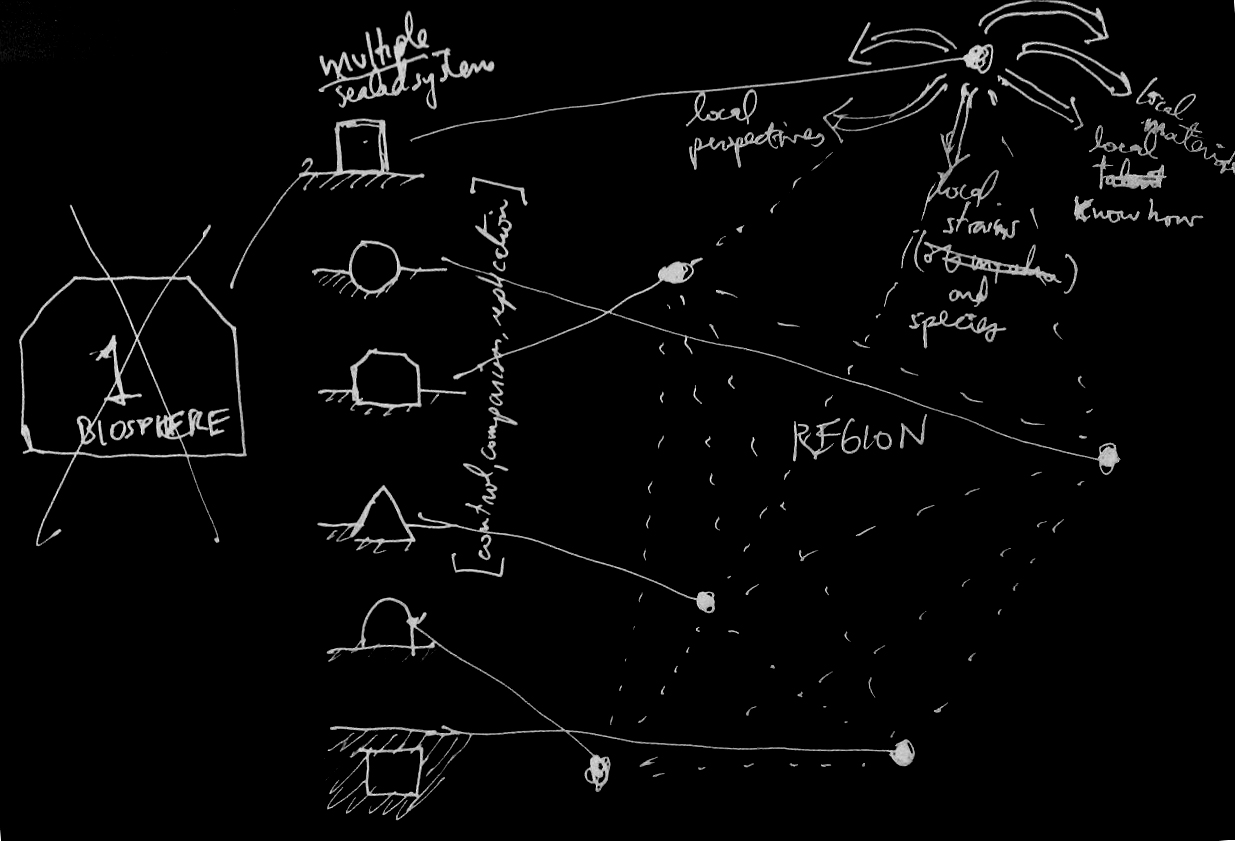 multiple
sealed systems
1
BIOSPHERE
[control, comparison, replication]
local
perspectives
local
materials
local
talent
know how
local
strains
and
species
REGION